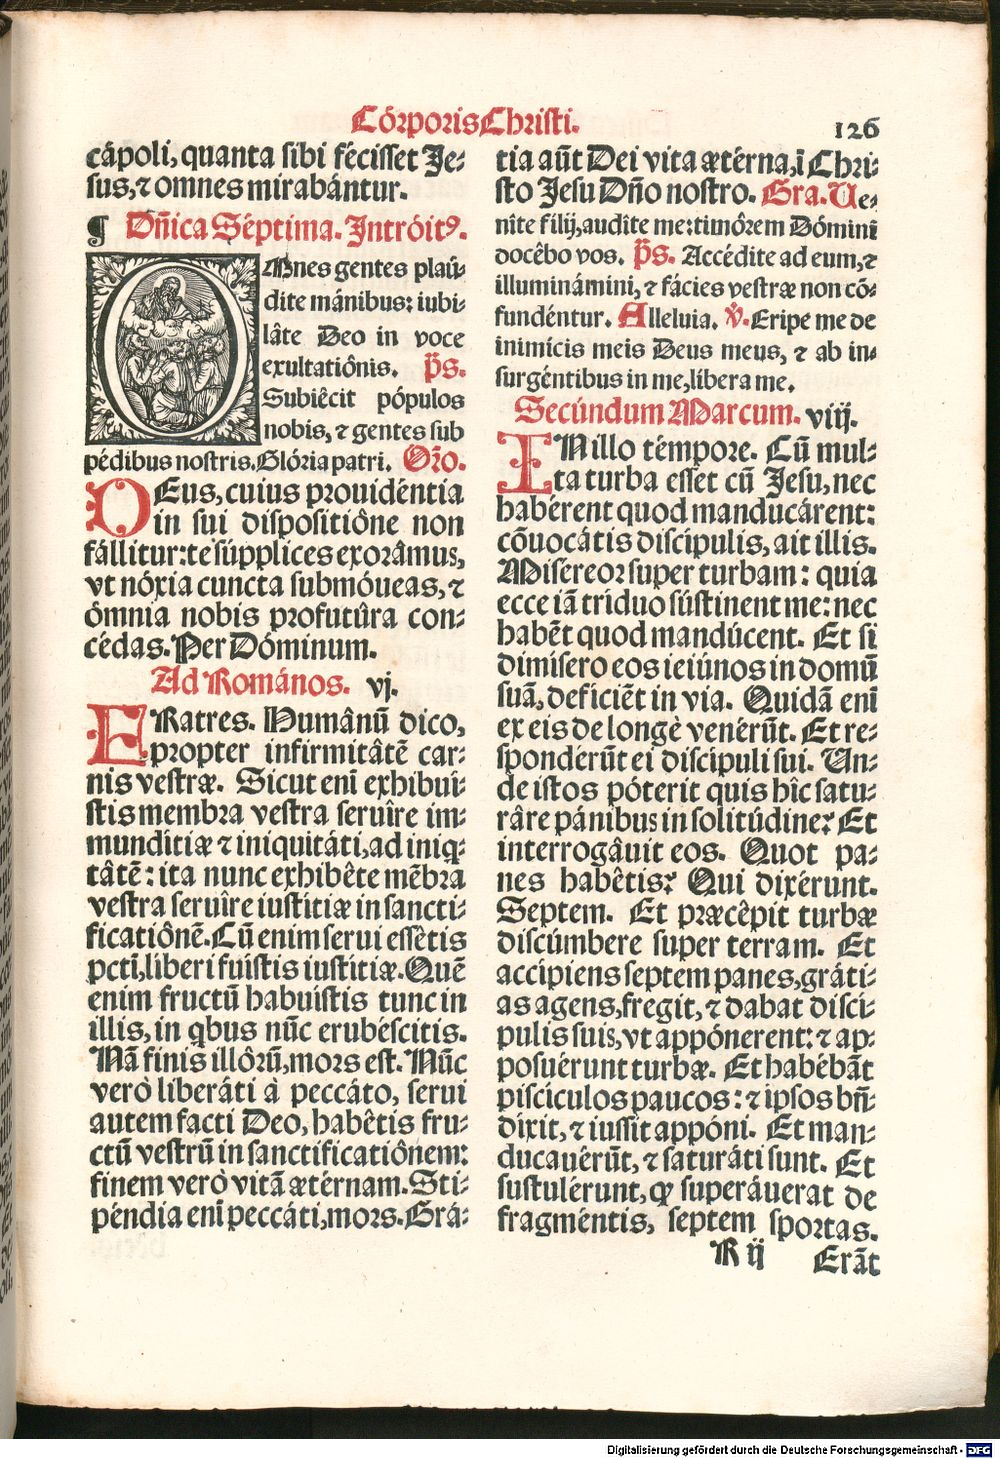 Córporis Christi.
126
cãpoli, quanta sibi fécisset Je⸗
sus, ⁊ omnes mirabántur.
¶ Dñica Séptima. Intróitꝰ.
OMnes gentes plaũ⸗
dite mánibus: iubi⸗
láte Deo in voce
exultatiônis. p̃s.
Subiêcit pópulos
nobis, ⁊ gentes sub
pédibus nostris. Glória patri. Oro.
DEus, cuius prouidéntia
in sui dispositiône non
fállitur: te súpplices exorâmus,
vt nóxia cuncta submóueas, ⁊
ómnia nobis profutûra con⸗
cédas. Per Dóminum.
Ad Romános. vj.
FRatres. Humânũ dico,
propter infirmitâtẽ car⸗
nis vestræ. Sicut enĩ exhibuí⸗
stis membra vestra seruîre im⸗
mundítiæ ⁊ iniquitáti, ad iniq̃⸗
tâtẽ: ita nunc exhibête mẽbra
vestra seruîre iustítiæ in sancti⸗
ficatiônẽ. Cũ enim serui essêtis
pctĩ, liberi fuístis iustítiæ. Quẽ
enim fructũ habuístis tunc in
illis, in qbus nũc erubéscitis.
Nã finis illórũ, mors est. Nũc
verò liberáti à peccáto, serui
autem facti Deo, habêtis fru⸗
ctũ vestrũ in sanctificatiônem:
finem verò vitã ætérnam. Sti⸗
péndia enĩ peccáti, mors. Grá⸗
tia aũt Dei vita ætérna, ĩ Chri⸗
sto Jesu Dño nostro. Gra. Ue⸗
nîte filij, audîte me: timôrem Dóminĩ
docêbo vos. p̃s. Accédite ad eum, ⁊
illuminámini, ⁊ fácies vestræ non cõ⸗
fundéntur. Alleluia. ꝟ. Eripe me de
inimícis meis Deus meus, ⁊ ab in⸗
surgéntibus in me, libera me.
Secúndum Marcum. viij.
INillo témpore. Cũ mul⸗
ta turba esset cũ Jesu, nec
habérent quod manducárent:
cõuocátis discípulis, ait illis.
Miséreor super turbam: quia
ecce iã tríduo sústinent me: nec
habẽt quod mandúcent. Et si
dimísero eos ieiúnos in domũ
suã, defíciẽt in via. Quidã enĩ
ex eis de longè venérũt. Et re⸗
spondérũt ei discípuli sui. Un⸗
de istos póterit quis hîc satu⸗
râre pánibus in solitúdine? Et
interrogâuit eos. Quot pa⸗
nes habêtis? Qui dixérunt.
Septem. Et præcêpit turbæ
discúmbere super terram. Et
accípiens septem panes, gráti⸗
as agens, fregit, ⁊ dabat discí⸗
pulis suis, vt appónerent: ⁊ ap⸗
posuérunt turbæ. Et habébãt
piscículos paucos: ⁊ ipsos bñ⸗
díxit, ⁊ iussit appóni. Et man⸗
ducauérũt, ⁊ saturáti sunt. Et
sustulérunt, qđ superáuerat de
fragméntis, septem sportas.
R ij Erãt
Digitalisierung gefördert durch die Deutsche Forschungsgemeinschaft - DFG